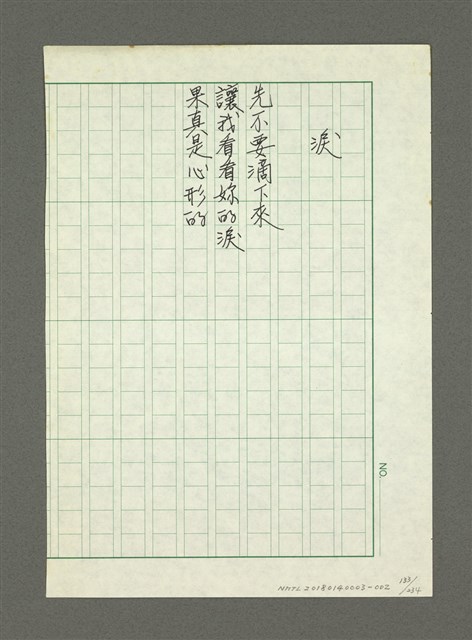 淚
先不要滴下來
讓我看看妳的淚
果真是心形的
NO.
NMTL20180140003-002
133/234